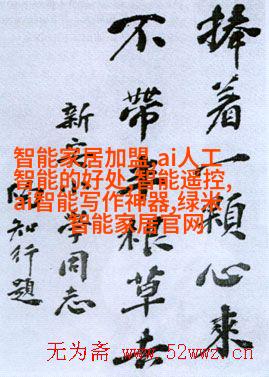 捧着一顆心來
不帶半根草去
新安小學同志
陶知行題
智能家居加盟,ai人工
智能的好处,智能遥控,
ai智能写作神器,绿米
智能家居官网
无为斋 www.52wwz.cn